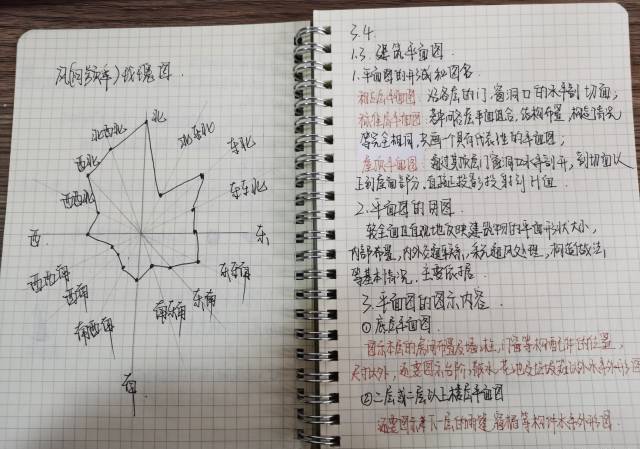 风(向频率)玫瑰图.
北
北西北
北东北
西北
东北
西西北
东东北
西
东
西西南
东东南
西南
东南
南西南
南东南
南
3.4
1.3 建筑平面图.
1.平面图的形成和图名
相应层平面图: 沿各层的门、窗洞口的水平剖切面;
标准层平面图: 若中间各层平面组合、结构布置、构造情况
等完全相同, 只画一个具有代表性的平面图;
屋顶平面图: 通过其顶层门窗洞口水平剖开, 剖切面以
上到屋面部分, 直接正投影投射到H面.
2.平面图的用途
较全面且直观地反映建筑物的平面形状大小,
内部布置, 内外交通联系, 采光通风处理, 构造做法,
等基本情况. 主要依据.
3.平面图的图示内容.
①底层平面图.
图示本层的房间布置及墙、柱、门窗等构配件的位置,
尺寸以外, 还要图示台阶、散水、花池及垃圾箱以外水平外形图
②二层或二层以上楼层平面图
还要图示本下一层的雨篷、窗楣等构件水平外形图.